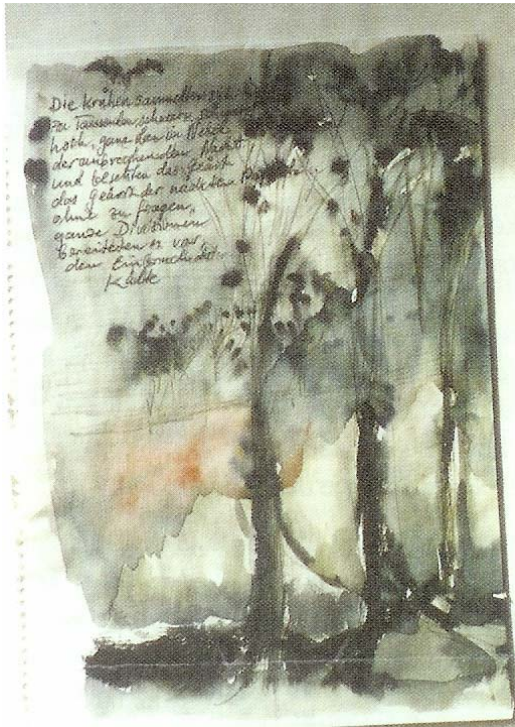 Die Krähen sammelten sich
zu Tausenden, schwarz
hoch, ganz
der anbrechenden Nacht
und besetzten das
das Geäst der nackten
ohne zu fragen,
ganze Divisionen
bereiteten vor
den Einbruch der
Kälte